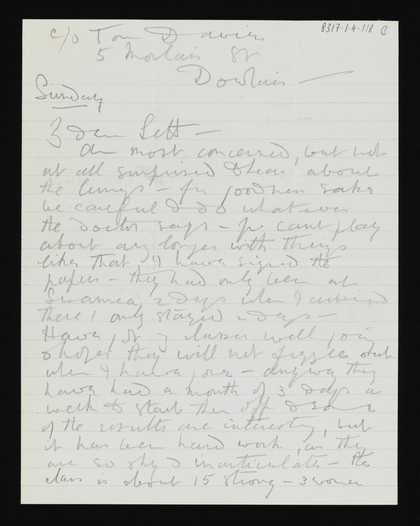 8317.1.4.118 C
c/o Tom Davies
5 Morlais St
Dowlais —
Sunday
dear Lett —
Am most concerned, but not
at all surprised to hear about
the lungs — for goodness sake
be careful & do whatever
the Doctor says — you cant play
about any longer with things
like that. I have signed the
papers — they had only been at
Swansea 2 days when I arrived
there I only stayed 2 days —
Have, classes well going
& hope they will not fizzle out
when I have gone — anyway they
have had a month of 3 days a
week to start them off & some
of the results are interesting, but
it has been hard work, as they
are so shy & inarticulate — the
class is about 15 strong — 3 women